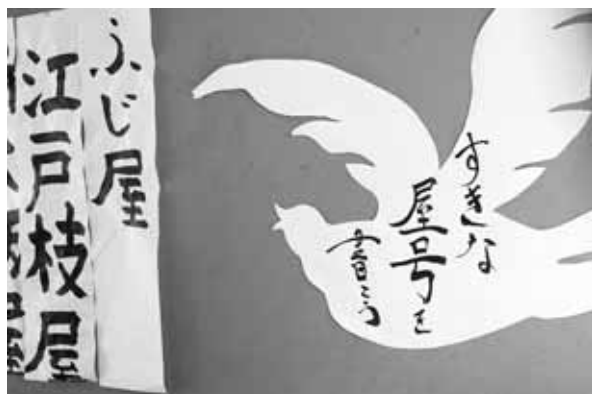 すきな
屋号を
書こう
ふじ屋
江戸枝屋